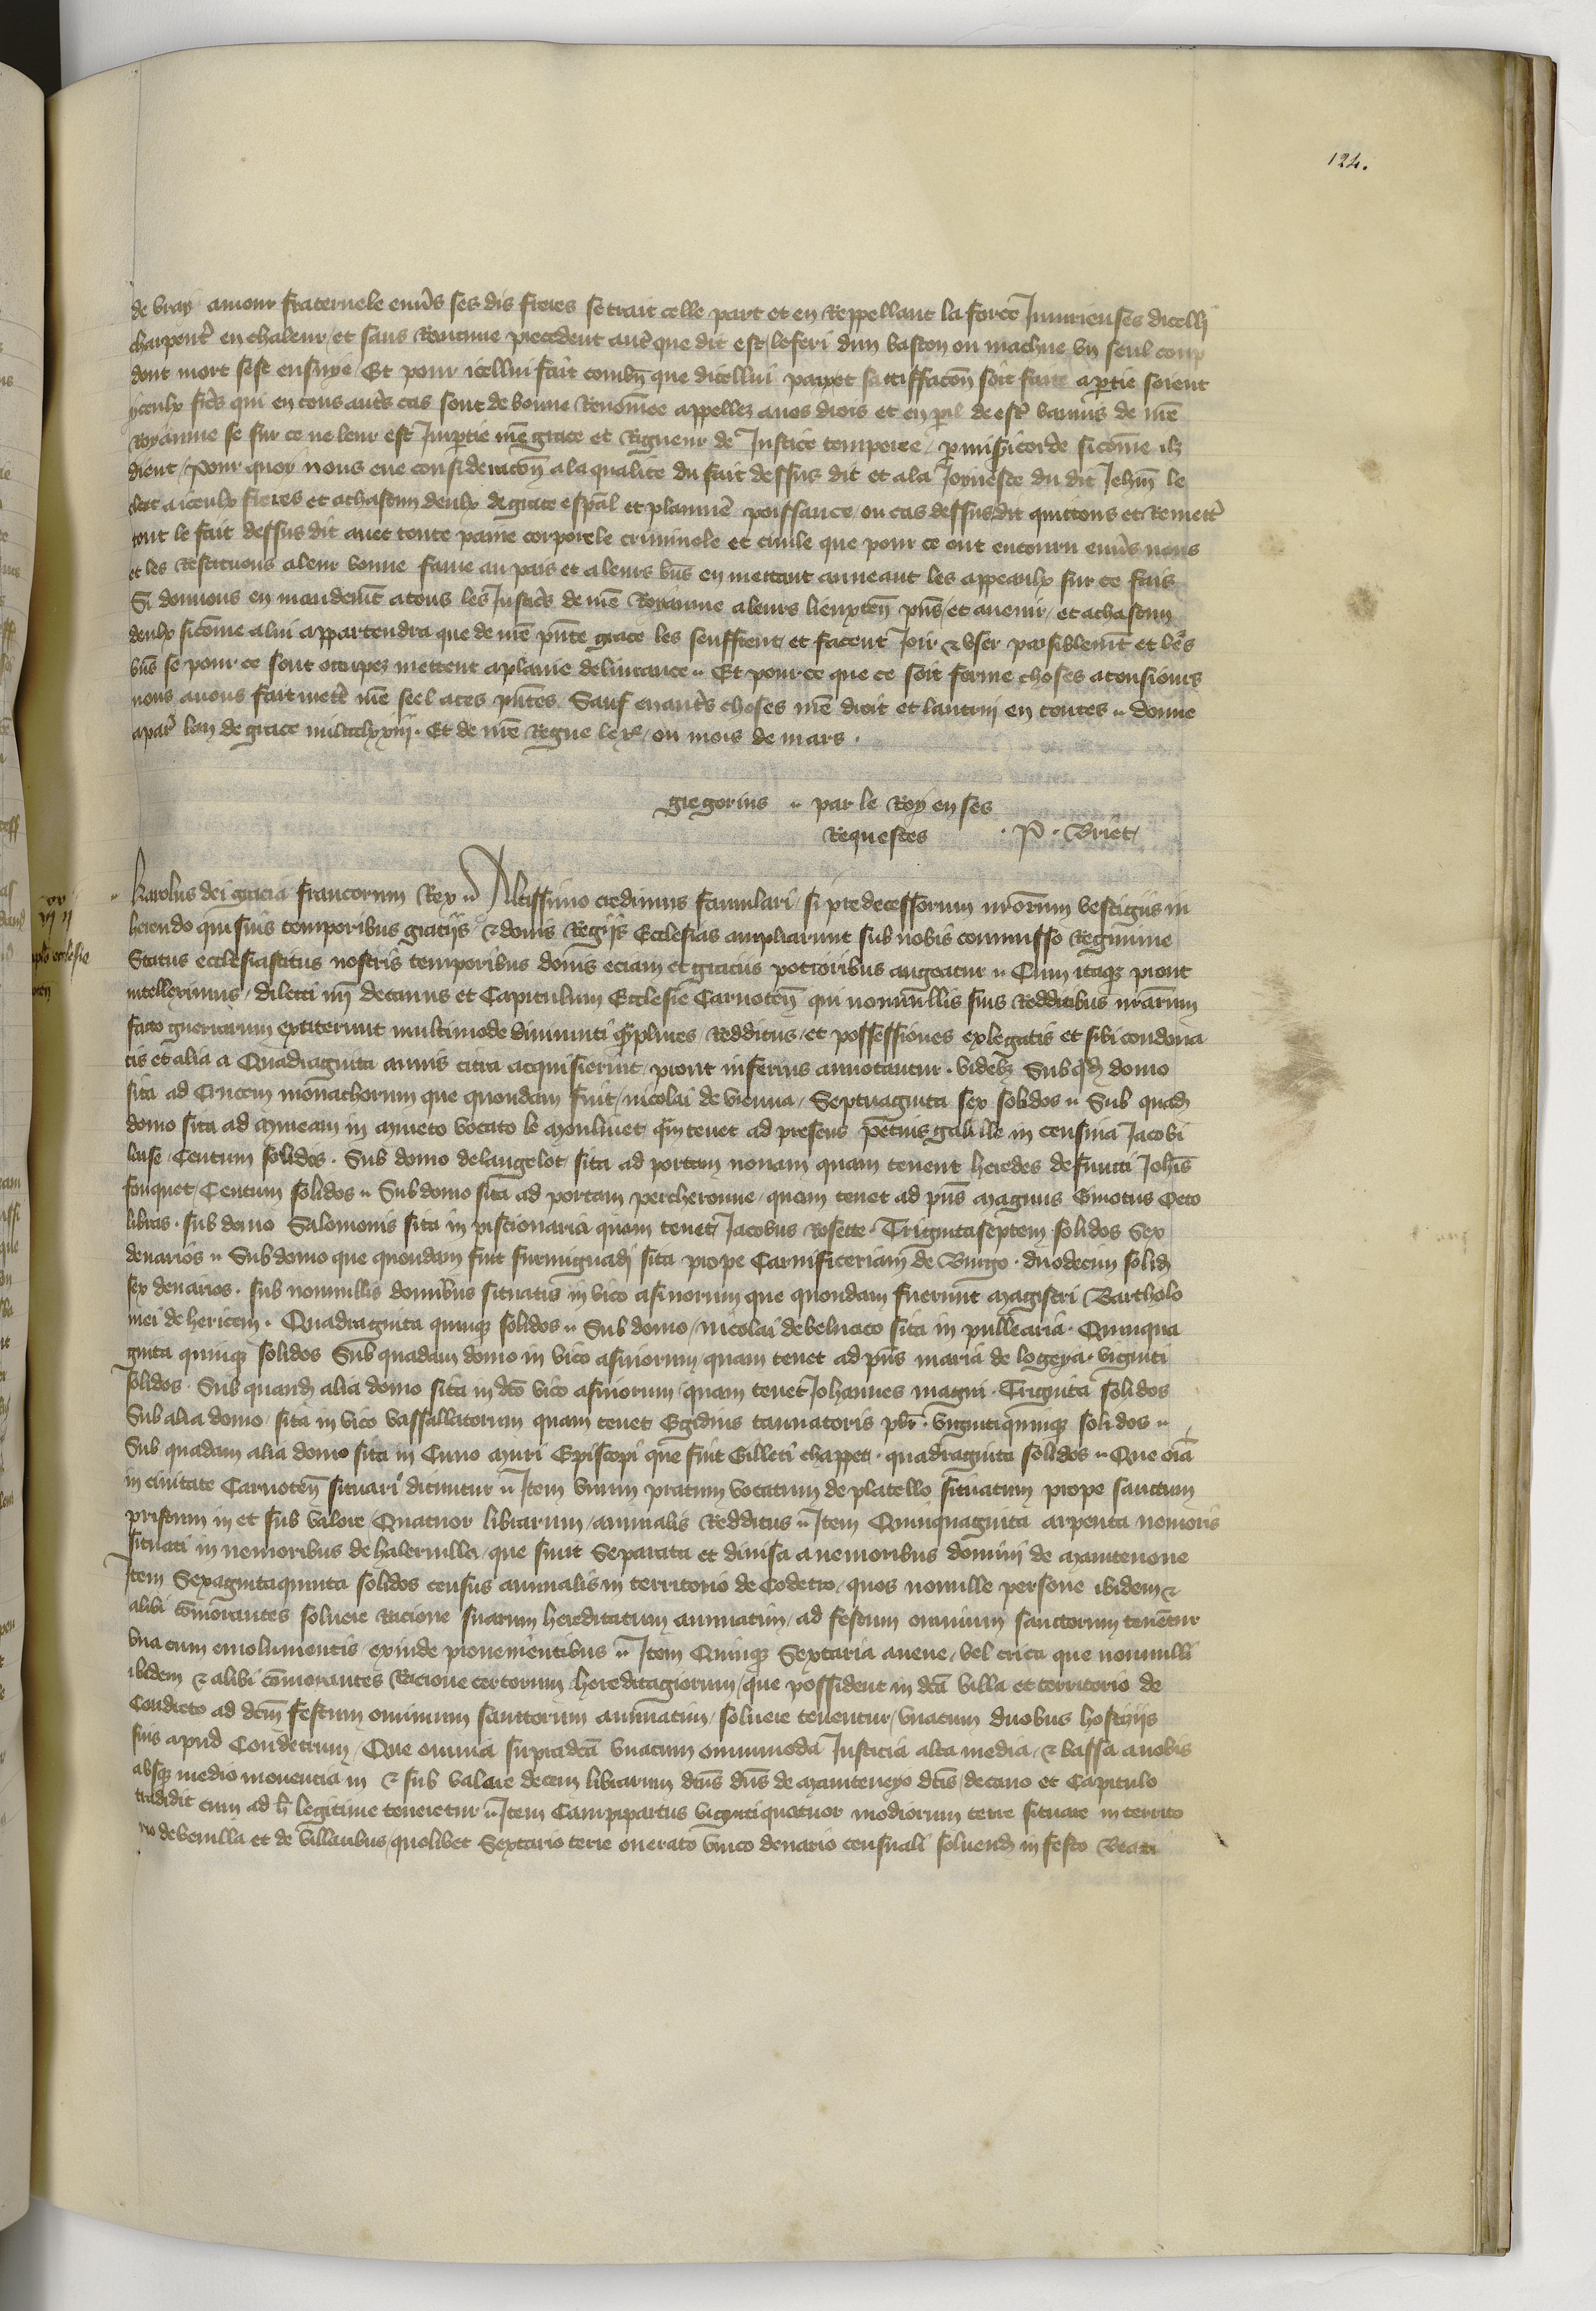 124.
de vray amour fraternele enũs ses dis freres se trait celle part et en Reppellant la force Jniurieuses dicelli
charpent̃ en chaleur / et sans Rancune precedent autre que dit est / le feri dun baston ou machue vn seul coup
dont mort sest ensuye / Et pour icellui fait combñ que dicellui satiffacoñ soit faite a ptie soient
yceulx frẽs qui en tous autrẽs cas sont de bonne Renom̃ee appellez a nos drois et en pil de estr̃ bannis de nr̃e
Royaume se sur ce ne leur est Jmptie nr̃e grace et Rigueur de Justice temperee / p misicorde sicom̃e ilz
dient / Pour quoy nous eue consideracoñ a la qualite du fait dessus dit et a la Joyneste du dit Jehañ le
clerc a iceulx freres et a chascun deulx de grace esp̃al et planniẽ poissance ou cas dessusdit quittons et Remett̃
tout le fait dessus dit auec toute paine corporele criminele et ciuile que pour ce ont encouru enũs nous
et les Restituons a leur bonne fame au pais et a leurs bñs en mettant au neant les appeaulx sur ce fais
Si donnons en mandem̃t a tous les Justicr̃s de nr̃e Royaume a leurs lieuxteñ pñs / et auenir / et a chascun
deulx sicom̃e a lui appartendra que de nr̃e pñte grace les seuffrent et facent Joir & vser paisiblem̃t et le's
bñs se pour ce sont occupez mettent a plaine deliurance .. Et pour ce que ce soit ferme chose a tousiours
nous auons fait mettr̃ nr̃e seel a ces pñtes. Sauf en autr̃s choses nr̃e droit et lautruy en toutes .. donne
a par' lan de grace mil ccclxxiii. Et de nr̃e Regne le xe / ou mois de mars .
gregorius .. par le Roy en ses
Requestes . P . Briet
Karolus dei gracia francorum Rex .. Altissimo credimus famulari / si predecessorum nr̃orum vestigiis in
herendo qui suis temporibus graciis & donis Regiis Ecclesias ampliarunt sub nobis commisso Regimine
Status ecclesiasticus nostris temporibus donis eciam et graciis potioribus augeatur .. Cum itaqz prout
intelleximus / dilecti nr̃i decanus et Capitulum Ecclesie Carnoteñ qui nonnullis suis Redditibus nr̃arum
facto guerrarum extiterunt multimode diminuti qplures / Redditus / et possessiones ex legatis et sibi condona
tis et alia a Quadraginta annis citra acquisierint / prout inferius annotantur . videlz Sub qdã domo
sita ad Crucem monachorum que quondam fuit / nicolai de vienna / Septuaginta sex solidos .. Sub quadã
domo sita ad in vocato le Moulinet qm̃ tenet ad presens petrus galille in censiua Jacobi
lense / Centum solidos . Sub domo delangelot sita ad portam nouam quam tenent heredes defuncti Joh̃is
fouquet / Centum solidos .. Sub domo sita ad portam percheronne / quam tenet ad pñs magnus Octo
libras . sub domo Salomonis sita in piscionaria quam tenet Jacobus Rosette . Triginta septem solidos Sex
denarios .. Sub domo que quondam fuit sita prope Carnificeriam de Burgo . duodecim solid
sex denarios . sub nonnullis domibus situatis in vico asinorum que quondam fuerunt Magistri Bartholo
mei de hericem . Quadraginta quinqz solidos .. Sub domo / nicolai de beluaco sita in pullearia . Quinqua
ginta quinqz solidos Sub quadam domo in vico asinorum / quam tenet ad pñs maria de logeya . viginti
solidos . Sub quandã alia domo sita in dc̃o vico asinorum quam tenet Johannes magni . Triginta solidos
Sub alia domo / sita in vico vassallatorum quam tenet Egidius tannatoris pbr̃ . viginti quinqz solidos ..
Sub quadam alia domo sita in Cuno muri Episcopi que fuit Gilleti chappet . quadraginta solidos .. Que oĩa
in ciuitate Carnoteñ situari dicuntur .. Item vnum pratum vocatum de platello situatum prope sanctum
priscum in et sub valore Quatuor librarum / annualis Redditus .. Item Quinquaginta arpenta nemoris
situati in nemoribus de halervillei / que sunt Separata et diuisa a nemoribus domini de Maintenone
Item Sexagintaquinta solidos census annualis in territorio de Codetro / quos nonulle persone ibidem &
alibi com̃orantes soluere Racione suarum hereditatum annuatim / ad festum omnium sanctorum tenẽtur
vna cum emolumentis exinde prouenientibus .. Item Quinqz Sextaria auene / vel circa que nonnulli
ibidem & alibi com̃orantes Racione certorum hereditagiorum / que possident in dc̃a villa et territorio de
Condreto ad dc̃m festum omnium sanctorum annuatim / soluere tenentur / vnacum duobus hostisiis
sius apud Condetrum / Que omnia supradc̃a vnacum omnimoda Justicia alta media / & bassa a nobis
absqz medio mouencia in & sub valore decem librarum dc̃us dñs de Mainteneyo dc̃is / decano et Capitulo
tradidit cum ad h̃ legitime teneretur .. Item Campipartus viginti quatuor modiorum terre situate in territo
rio de bevilla et de villaribus / quolibet Sextario terre onerato vnico denario censuali soluend in festo Beati